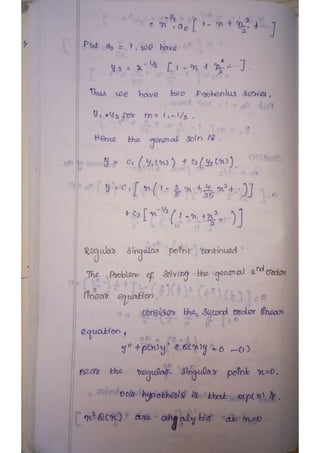 = x^-1/2 . a0 [1 - x + x²/2 + ...]
Put a0 = 1, we have
y2 = x^-1/2 [1 - x + x²/2 - ...].
Thus we have two Frobenius series,
y1, y2 for m = 1, -1/2.
Hence the general soln is
y = c1 (y1(x)) + c2 (y2(x)).
y = c1 [x(1 - 2/5 x + 4/35 x² + ...)]
+ c2 [x^-1/2 (1 - x + x²/2 ...)]
Regular singular point continued:
The Problem of solving the general 2nd order
linear equation
consider the, second order linear
equation,
y'' + p(x)y' + Q(x)y = 0 —(1).
near the regular singular point x=0.
our hypothesis is that xp(x) &
x² Q(x) are analytic at x=0